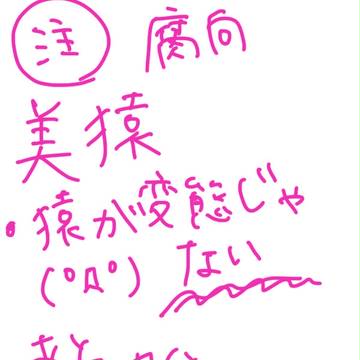 注 腐向
美猿
・猿が変態じゃ
(°Д°) ない